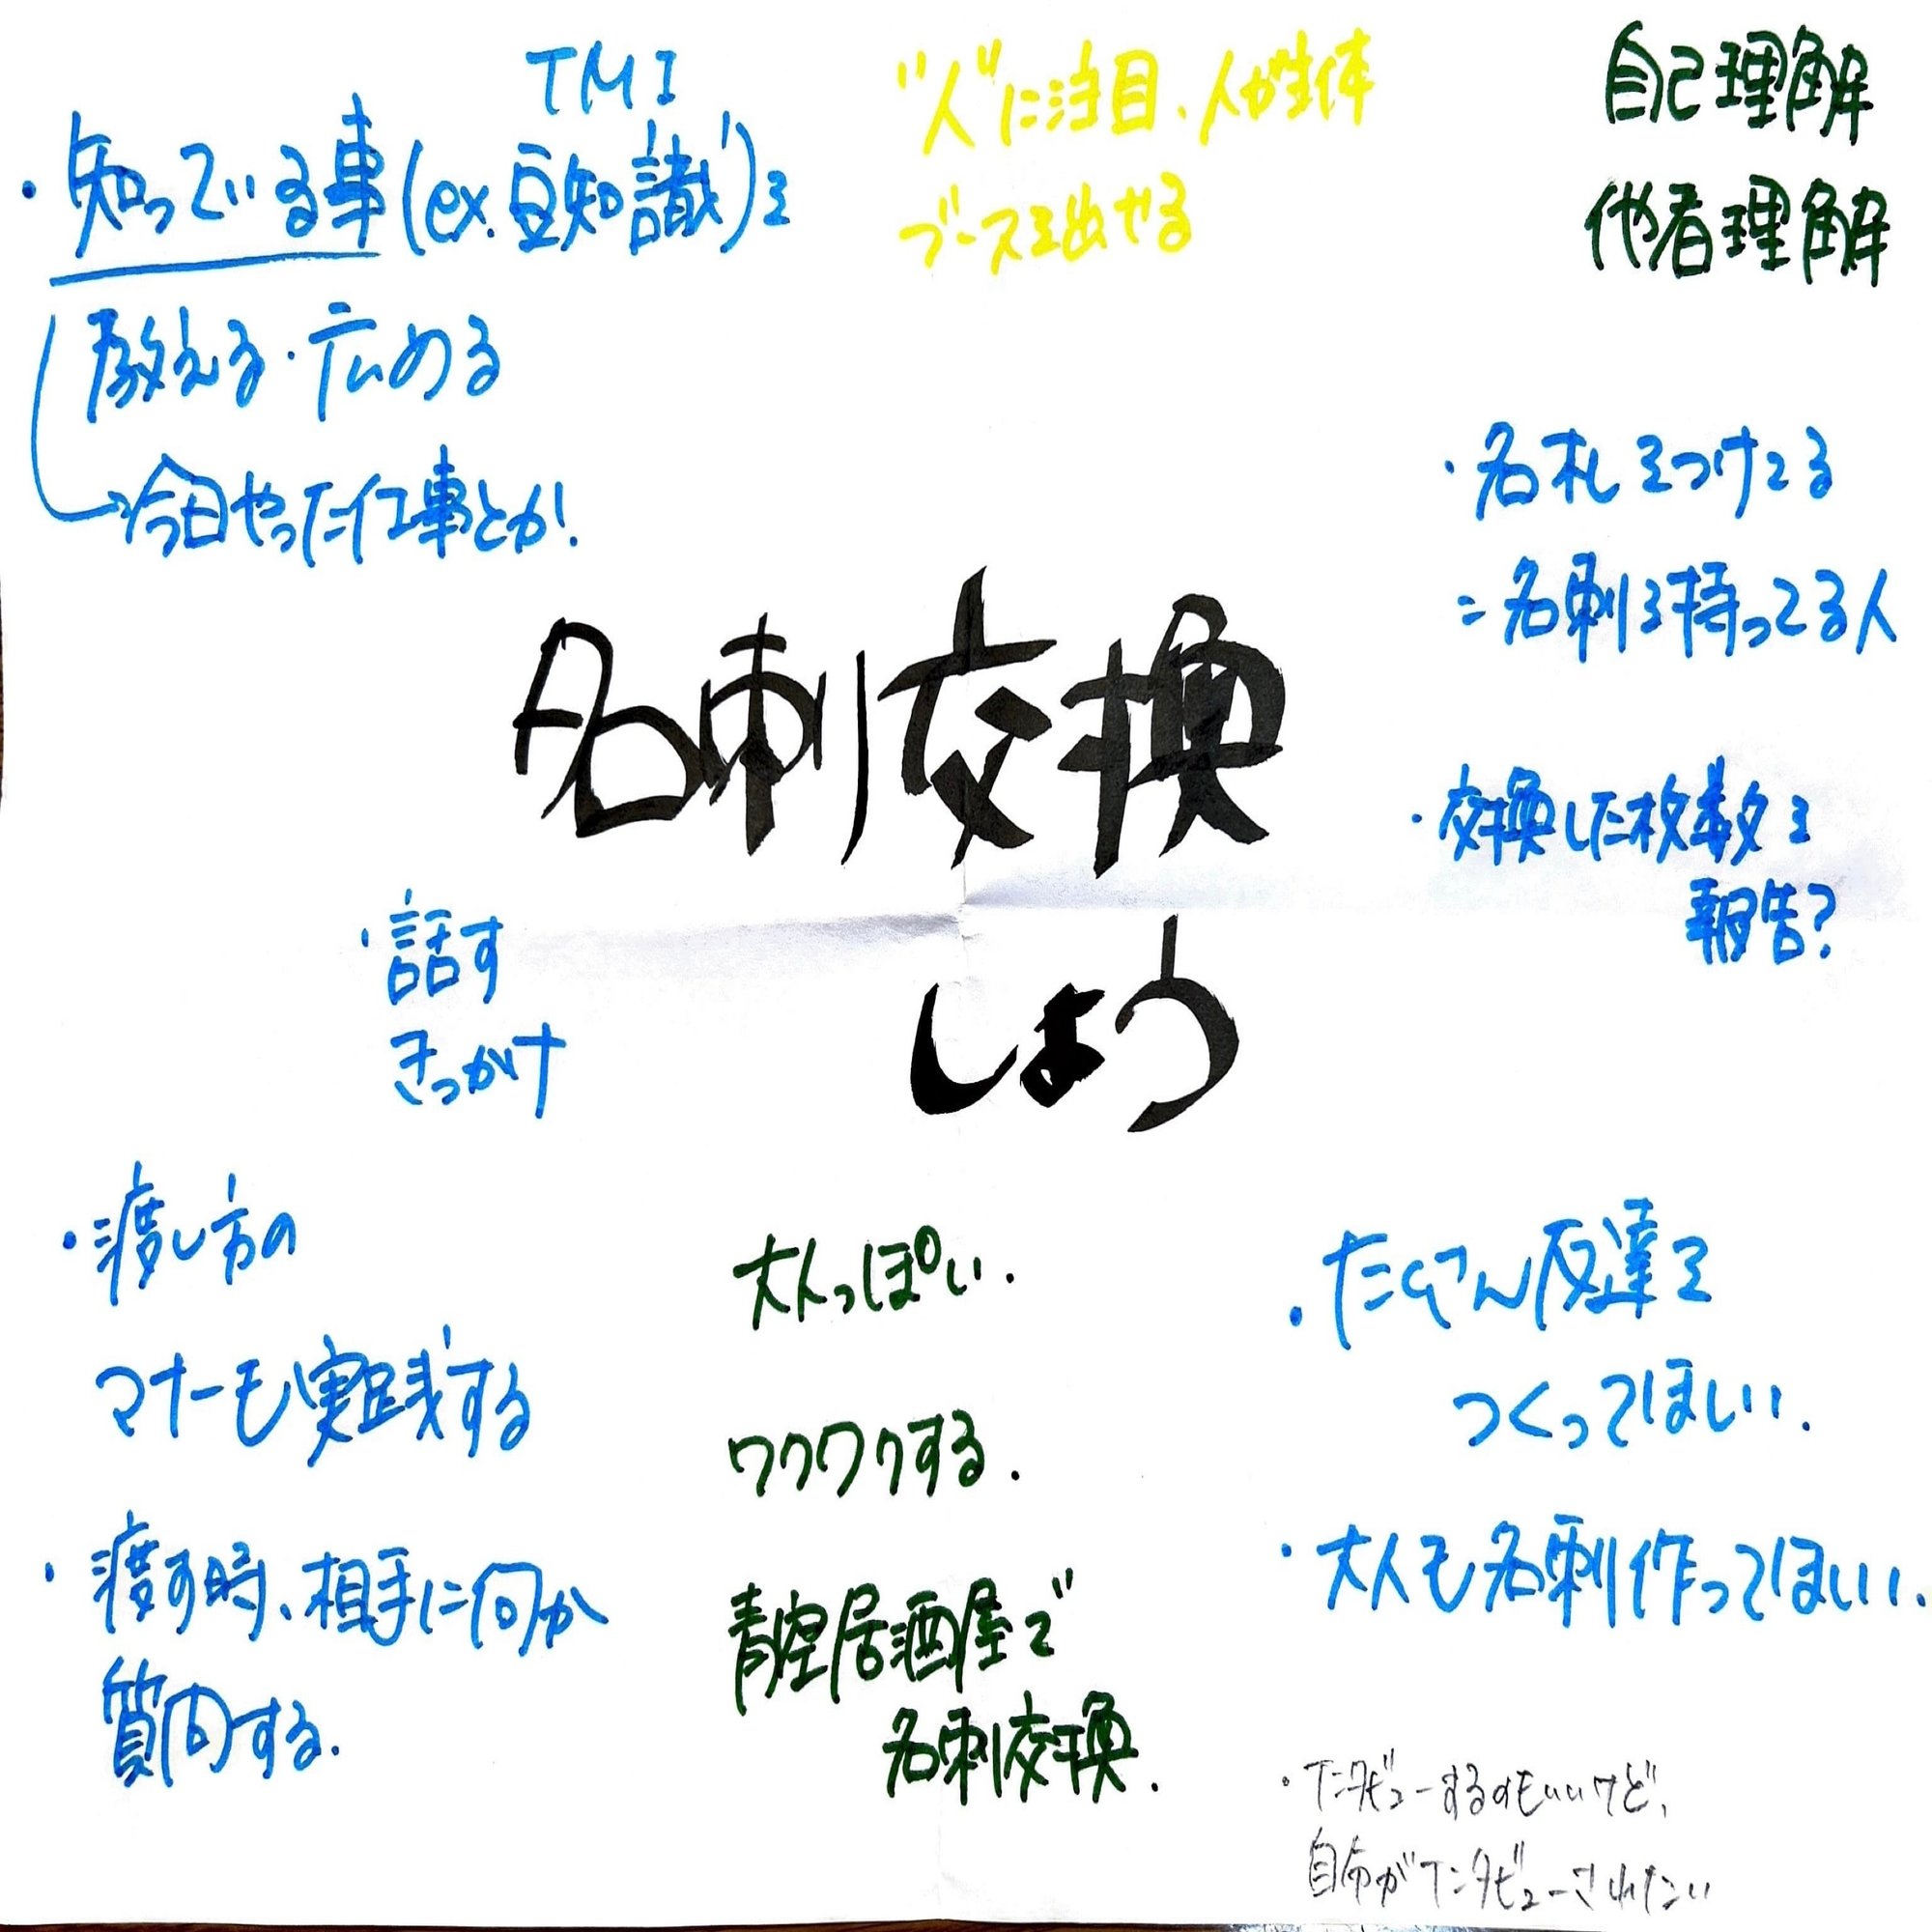 TMI
・知っている事(ex.豆知識)を
教える・広める
→今日やった仕事とか!
"人"に注目、人が主体
ブースを出せる
自己理解
他者理解
・名札をつけてる
=名刺を持ってる人
・交換した枚数を
報告?
名刺交換
しよう
・話す
きっかけ
・渡し方の
マナーも実践する
・渡す時、相手に何か
質問する.
大人っぽい.
ワクワクする.
青空居酒屋で
名刺交換.
・たくさん友達を
つくってほしい.
・大人も名刺作ってほしい.
・インタビューするのもいいけど、
自分がインタビューされたい